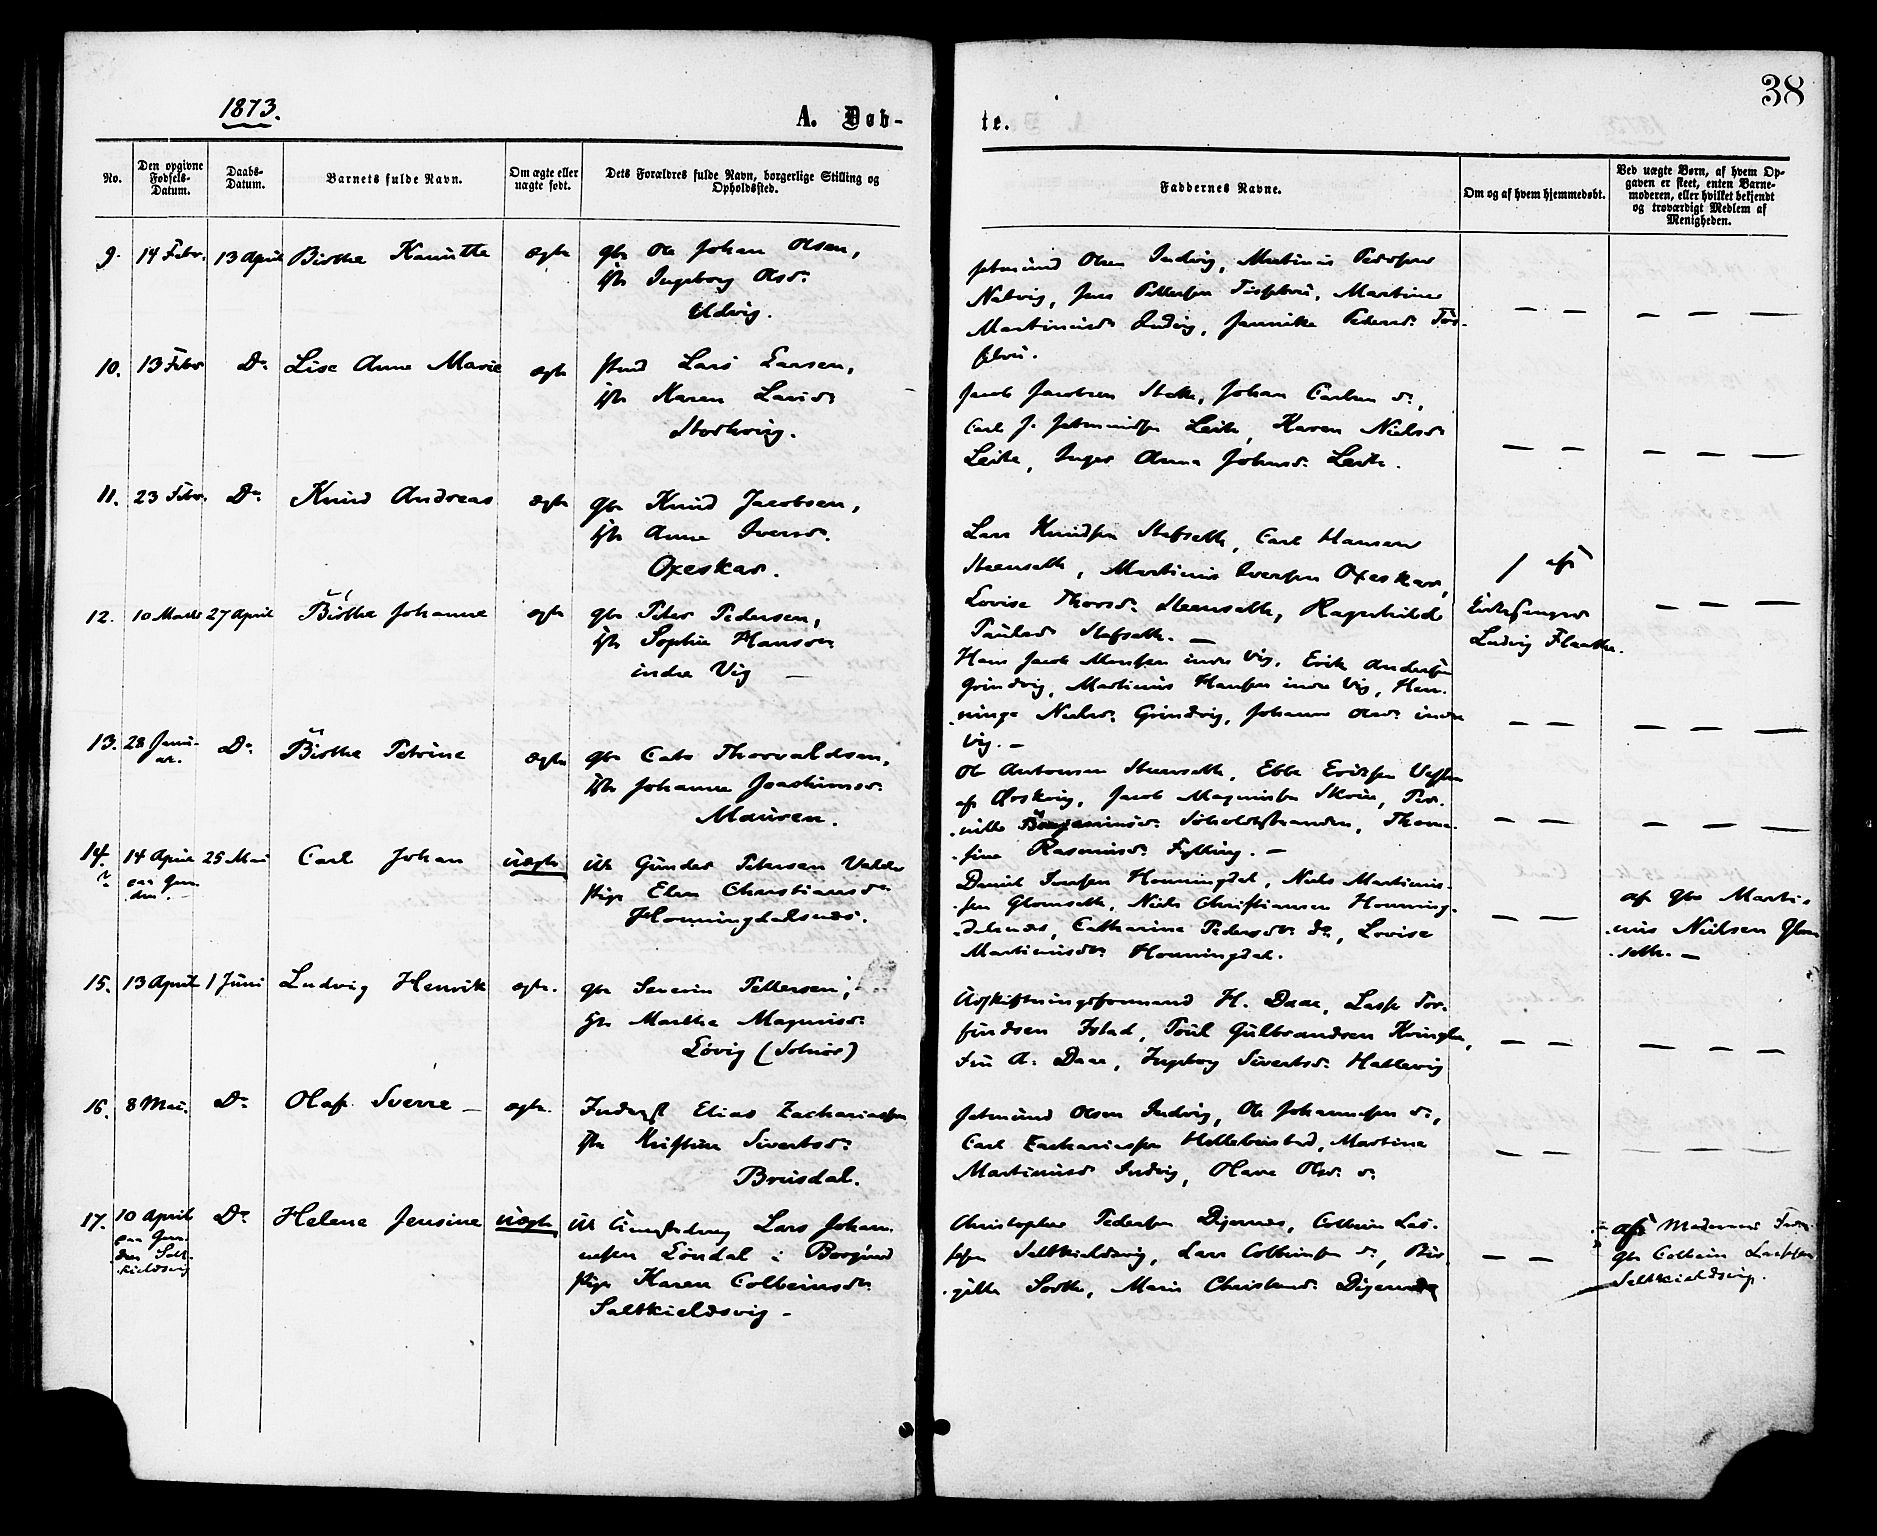 1873.
A. Døb-
te.
38
No.
Den opgivne Fødsels-Datum.
Daabs-Datum.
Barnets fulde Navn.
Om ægte eller uægte født.
Dets Forældres fulde Navn, borgerlige Stilling og Opholdssted.
Faddernes Navne.
Om og af hvem hjemmedøbt.
Ved uægte Børn, af hvem Op-
gaven er skeet, enten Barne-
moderen, eller hvilket bekjendt
og troværdigt Medlem af
Menigheden.
9. 14 Febr. 13 April Birthe Kanutte ægte gbr Ole Johan Olsen,
Ingeborg Olsdr
Uldvig.
Jetmund Olsen Indvig, Martinus Pedersen
Natvig, Jens Pettersen, Martine
Martinusdr Indvig, Jannike Pedersdr
10. 13 Febr Do Lise Anne Marie ægte Lars Larsen,
Karen Larsdr
Stockvig.
Jacob Jacobsen, Johan Carlsen do,
Carl J. Jetmundsen Leite, Karen Nielsdr
Leite, Inger Anna Johnsdr Leite.
11. 23 Febr. Do Knud Andreas ægte gbr Knud Jacobsen,
Anne Iversdr
Oxeskar.
Lars Knudsen Stafseth, Carl Hansen
Steenseth, Martinus Iversen Oxeskar,
Lovise Thorsdr Steenseth, Ragnhilde
Paulsdr Stafseth. —
/ af
Kirkesanger
Ludvig Flaathe.
12. 10 Marts 27 April Birthe Johanne ægte gbr Peter Pedersen,
Sophie Hansdr
indre Vig —
Hans Jacob Monsen indre Vig, Erik Andersen
Grindvig, Martinus Hansen indre Vig, Hen-
ninge Nielsdr Grindvig, Johanne Olsdr indre
Vig. —
13. 28 Janu-
ar. Do Birthe Petrine ægte gbr Cato Thorvaldsen,
Johanne Joachimsdr
Mauren.
Ole Antonsen Steenseth, Ebbe Eriksen
Jacob Magnusen, Per-
nille Benjaminsdr Søholtstranden, Thoma-
sine Rasmusdr Fylling. —
14. 14 April 25 Mai Carl Johan uægte Uk Gunder Petersen
Pige Elen Christiansdr
Honningdalsnæs.
Daniel Honningdal, Niels Martinus-
sen Glomseth, Niels Christiansen Honning-
dalsnæs, Catharine Pedersdr do, Lovise
Martinusdr Honningdal.
af gbr Marti-
nus Nielsen Glom-
seth. —
15. 13 April 1 Juni Ludvig Henrik ægte. gbr Severin Pettersen,
Marthe Magnusdr
Løvig (Solnør)
Udskiftningsformand H. Daae, Lasse Tor-
findsen Istad, Poul Gulbrandsen Kringlen,
Fru A. Daae, Ingeborg Sivertsdr Hatlevig
16. 8 Mai. Do Olaf Sverre — ægte. Inderst Elias Zachariassen
Kristine Sivertsdr
Brusdal.
Jetmund Olsen Indvig, Ole Johannesen do,
Carl Zachariassen, Martine
Martinusdr Indvig, Olave Olsdr do
17. 10 April
Do Helene Jensine uægte Uk Lars Johan-
nesen Løndal i Borgund
Pige Karen Colbeinsdr
Saltkieldsvig —
Christopher Pedersen Digernes, Colbein Las-
sesen Saltkieldsvig, Lars Colbeinsen do, Bir-
gitte, Marie Digernes
af Moderens Fader
gbr Colbein Lassesen
Saltkieldsvig.